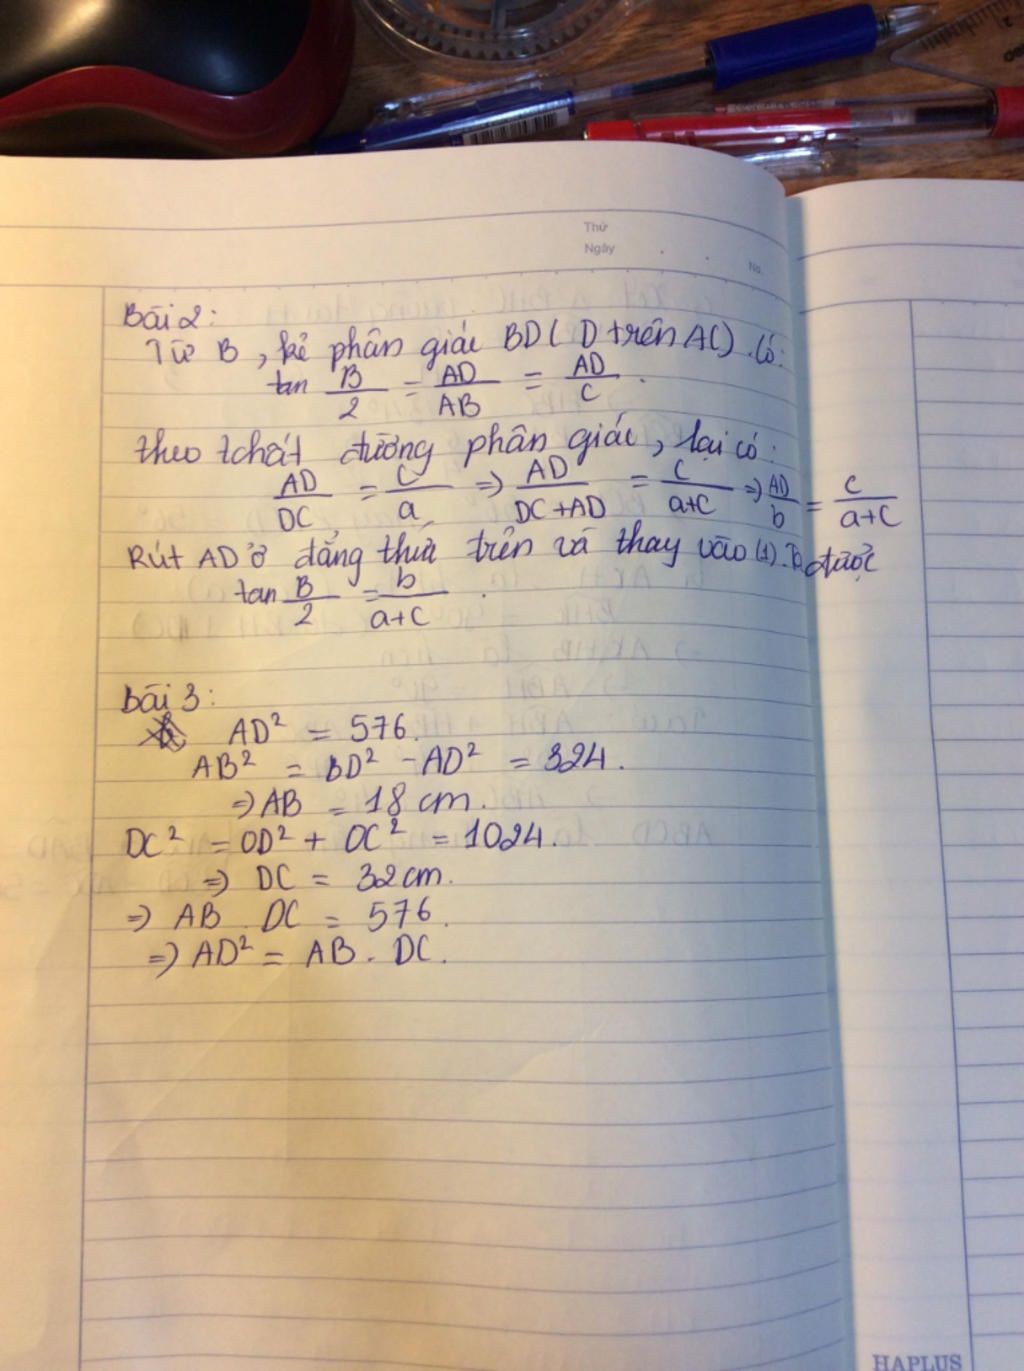 Thứ
Ngày
No.
Bài 2:
Từ B, kẻ phân giác BD (D trên AC). Có:
tan B/2 = AD/AB = AD/C.
theo tchất đường phân giác, lại có:
AD/DC = C/a ⇒ AD/DC+AD = C/a+C ⇒ AD/b = C/a+C
Rút AD ở đẳng thức trên và thay vào (1). được
tan B/2 = b/a+C.
Bài 3:
AD² = 576.
AB² = BD² - AD² = 324.
⇒ AB = 18 cm.
DC² = OD² + OC² = 1024.
⇒ DC = 32 cm.
⇒ AB . DC = 576.
⇒ AD² = AB . DC.
HAPLUS